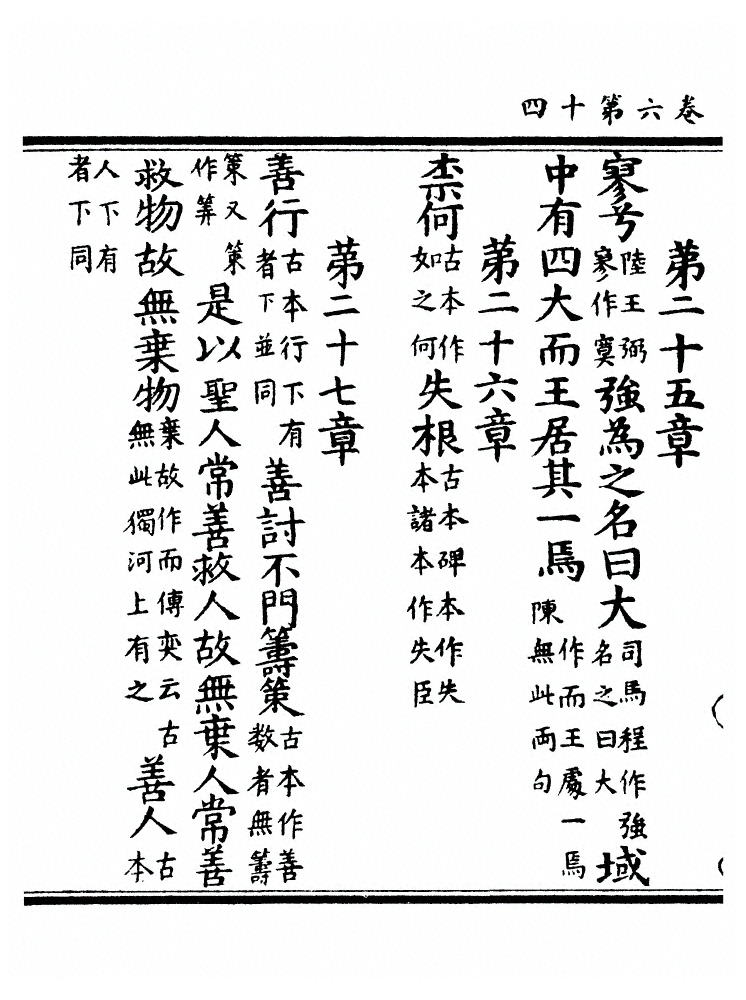 卷六第十四
第二十五章
寥兮陸王弼寥作寞強為之名曰大司馬程作強名之曰大域
中有四大而王居其一焉作而王處一焉陳無此両句
第二十六章
柰何古本作如之何失根古本碑本作失本諸本作失臣
第二十七章
善行古本行下有者下並同善討不門籌策古本作善数者無籌
策又策作筭是以聖人常善救人故無棄人常善
救物故無棄物棄故作而傳奕云古無此獨河上有之善人古本
人下有者下同